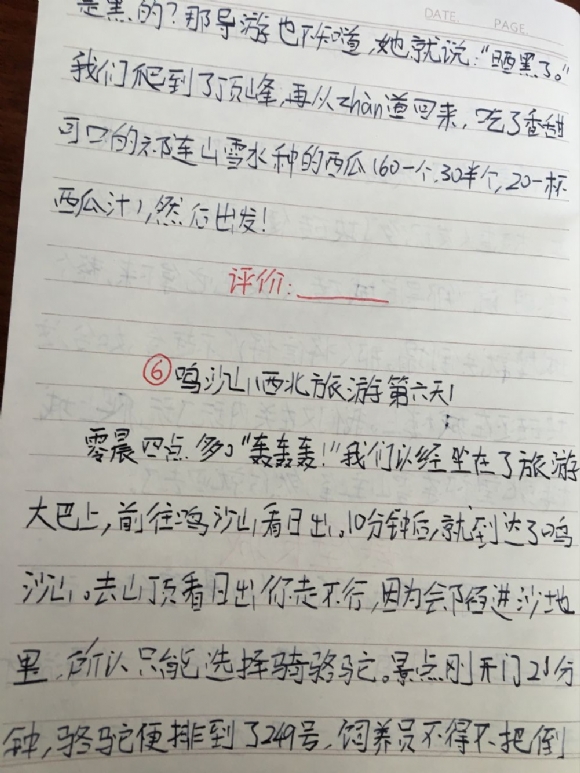 DATE. PAGE.
是黑的?那导游也不知道,她就说:“晒黑了。”
我们爬到了顶峰,再从zhàn道回来,吃了香甜
可口的祁连山雪水种的西瓜(60一个,30半个,20一杯
西瓜汁),然后出发!
评价:
⑥鸣沙山(西北旅游第六天)
零晨四点多。“轰轰轰!”我们以经坐在了旅游
大巴上,前往鸣沙山看日出。10分钟后,就到达了鸣
沙山。去山顶看日出你走不行,因为会陷进沙地
里,所以只能选择骑骆驼。景点刚开门2分
钟,骆驼便排到了249号,饲养员不得不把倒